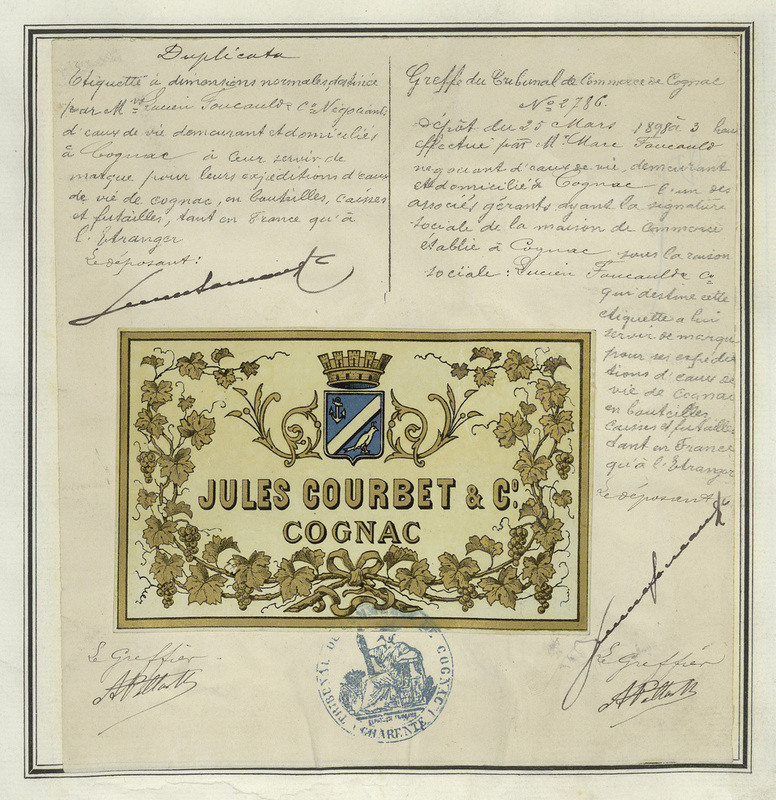 Duplicata
Etiquette à dimensions normales, destinée
par Mrs Lucien Foucauld & Co Négociants
d'eaux de vie demeurant et domiciliés
à Cognac à leur servir de
marque pour leurs expéditions d'eaux
de vie de cognac, en bouteilles, caisses
et futailles, tant en France qu'à
l'Etranger
Le déposant:
Greffe du Tribunal de Commerce de Cognac
No 2786.
Dépôt du 25 Mars 1898 à 3 h
effectué par Mr Marc Foucauld
négociant d'eaux de vie, demeurant
et domicilié à Cognac l'un des
associés gérants ayant la signature
sociale de la maison de commerce
établie à Cognac sous la raison
sociale: Lucien Foucauld & Co
qui destine cette
etiquette a lui
servir de marque
pour ses expédi
tions d'eaux de
vie de cognac
en bouteilles
caisses et futailles
tant en France
qu'à l'Etranger
Le déposant
JULES COURBET & Co.
COGNAC
Le Greffier
Le Greffier
TRIBUNAL DE COGNAC
CHARENTE